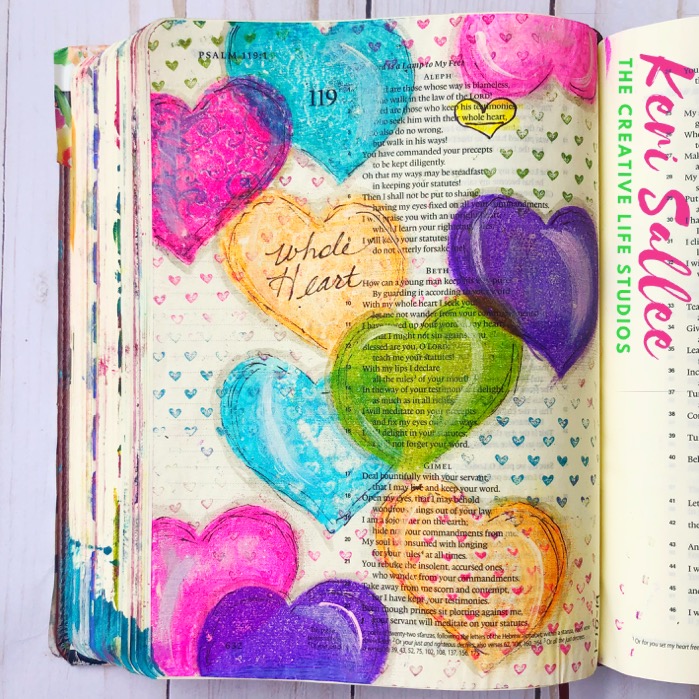 PSALM 119:1
is a Lamp to My Feet
119
ALEPH
are those whose way is blameless,
walk in the law of the LORD!
ed are those who keep his testimonies,
who seek him with their whole heart,
also do no wrong,
but walk in his ways!
You have commanded your precepts
to be kept diligently.
Oh that my ways may be steadfast
in keeping your statutes!
Then I shall not be put to shame,
having my eyes fixed on all your commandments.
I will praise you with an upright
when I learn your right
I will keep your statutes;
do not utterly forsake me!
whole
Heart
BETH
How can a young man keep his
By guarding it according
10 With my whole heart I seek you;
let me not wander from your commandments!
11 I have stored up your word in my heart,
that I might not sin against you.
12 Blessed are you, O LORD;
teach me your statutes!
13 With my lips I declare
all the rules of your mouth.
14 In the way of your testimonies I delight
as much as in all riches.
15 I will meditate on your precepts
and fix my eyes on your ways.
16 I will delight in your statutes;
I will not forget your word.
GIMEL
17 Deal bountifully with your servant,
that I may live and keep your word.
18 Open my eyes, that I may behold
wondrous things out of your law.
19 I am a sojourner on the earth;
hide not your commandments from me.
20 My soul is consumed with longing
for your rules at all times.
21 You rebuke the insolent, accursed ones,
who wander from your commandments.
Take away from me scorn and contempt,
for I have kept your testimonies.
Even though princes sit plotting against me,
your servant will meditate on your statutes.
Keri Sallee
THE CREATIVE LIFE STUDIOS